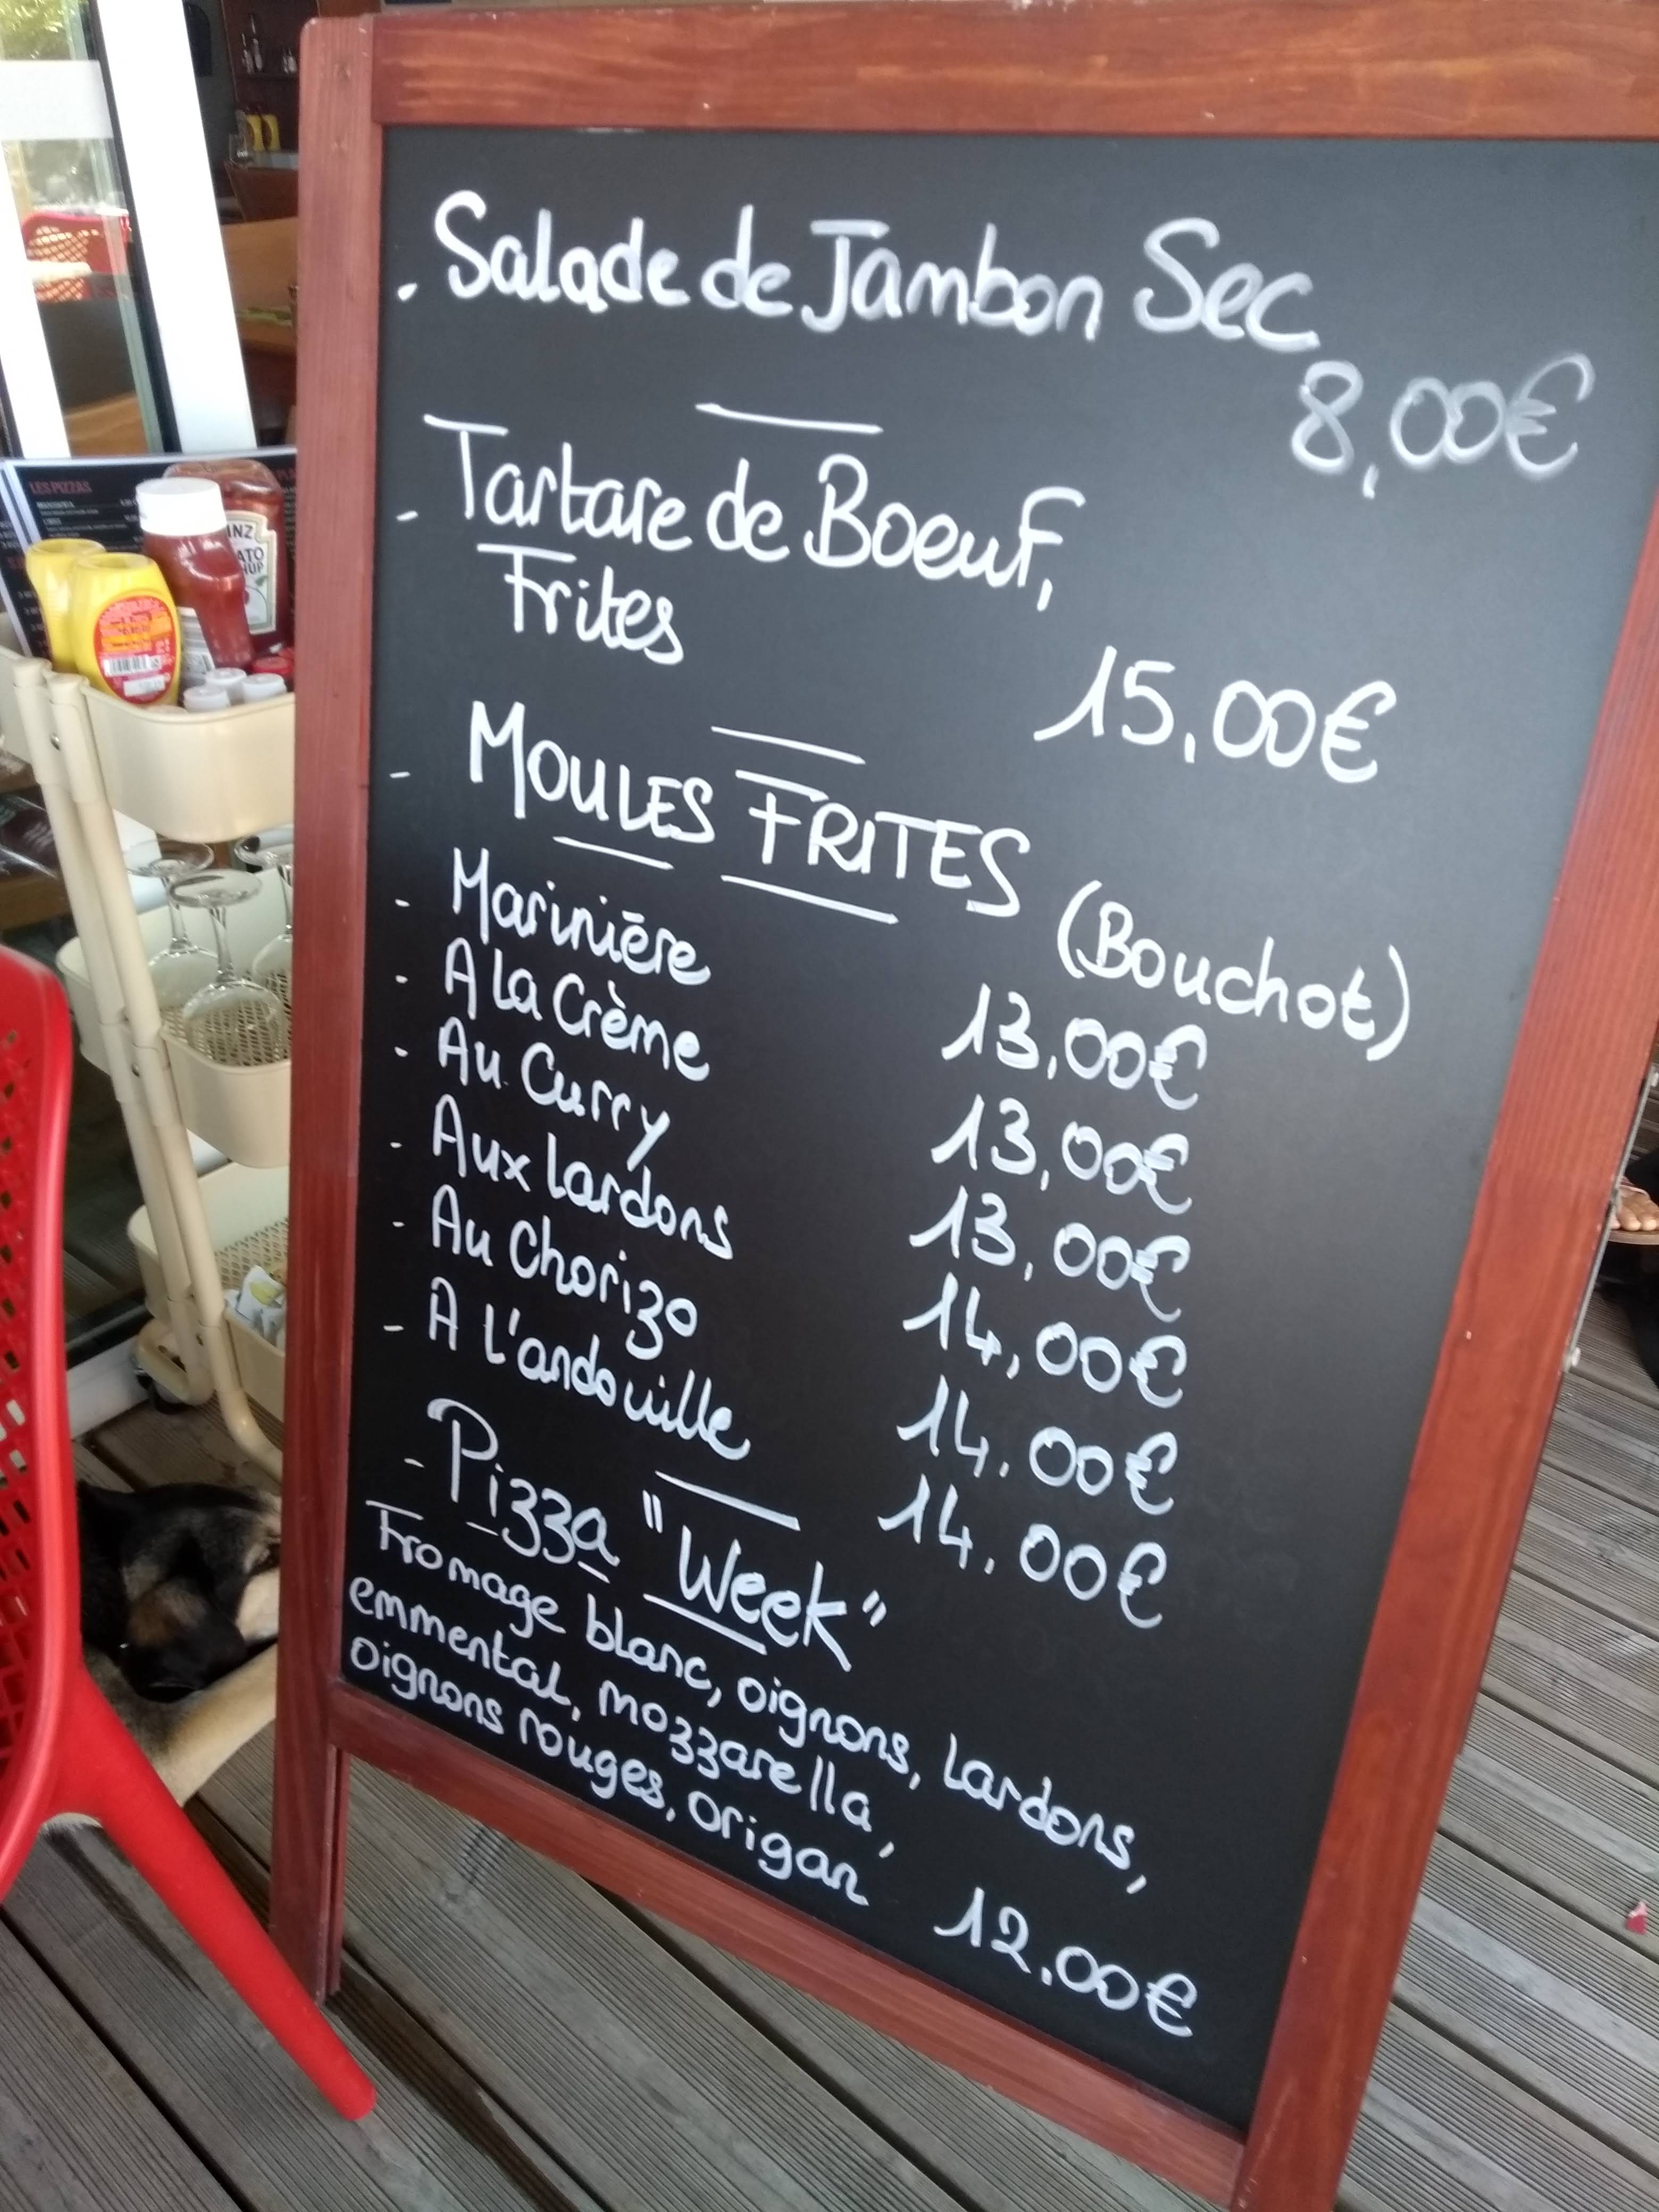 . Salade de Jambon Sec
8,00€
- Tartare de Boeuf,
Frites
15,00€
- MOULES FRITES
(Bouchot)
- Marinière 13,00€
- A la Crème 13,00€
- Au Curry 13,00€
- Aux lardons 14,00€
- Au Chorizo 14.00€
- A l'andouille 14.00€
- Pizza "Week"
Fromage blanc, oignons, lardons,
emmental, mozzarella,
oignons rouges, origan
12.00€
LES PIZZAS
INZ
ATO
HUP